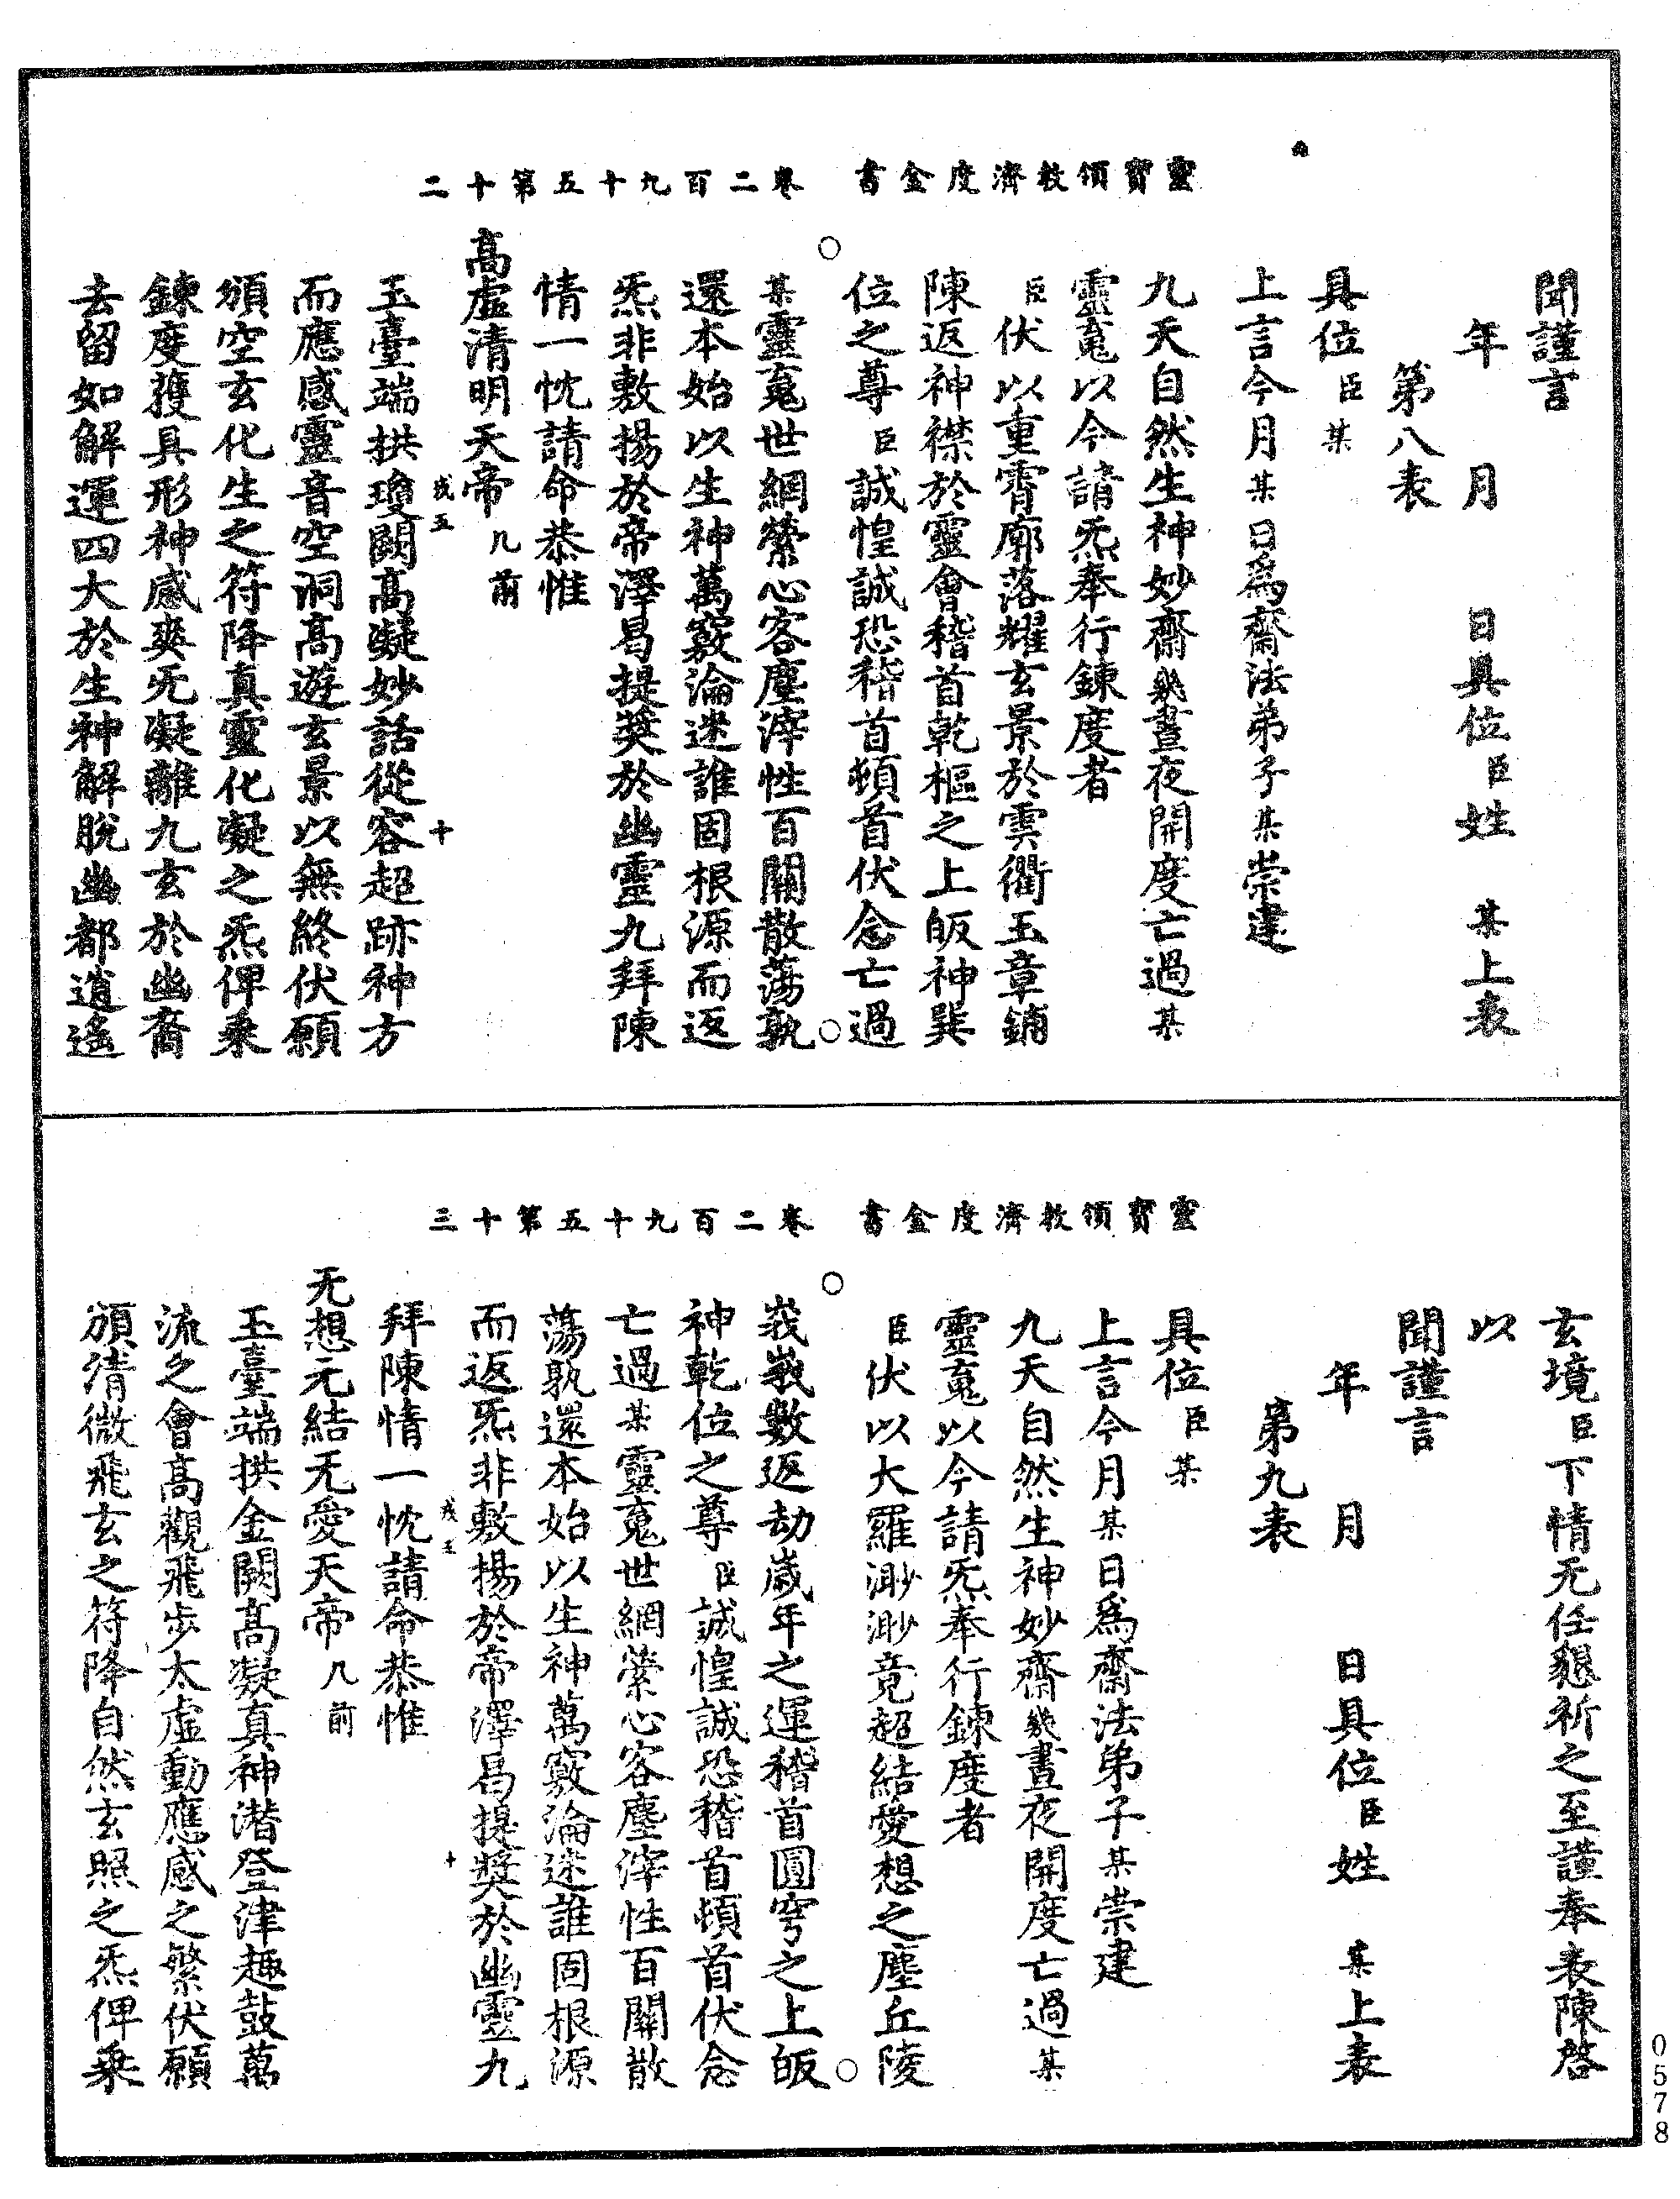 靈寶領教濟度金書　卷二百九十五第十二
聞謹言
年　月　日具位臣姓　某上表
第八表
具位臣某
上言今月某日為齋法弟子某崇建
九天自然生神妙齋幾晝夜開度亡過某
靈䰟以今請炁奉行鍊度者
臣伏以重霄廓落耀玄景於雲衢玉章鋪
陳返神襟於靈會稽首乾樞之上皈神巽
位之尊臣誠惶誠恐稽首頓首伏念亡過
某靈䰟世網縈心客塵滓性百關散蕩孰
還本始以生神萬竅淪迷誰固根源而返
炁非敷揚於帝澤曷提獎於幽靈九拜陳
情一忱請命恭惟
高虛清明天帝几前
玉臺端拱瓊闕高凝妙話從容超跡神方
而應感靈音空洞高遊玄景以無終伏願
頒空玄化生之符降真靈化凝之炁俾乘
鍊度獲具形神感爽旡凝離九玄於幽裔
去留如解運四大於生神解脫幽都逍遙
靈寶領教濟度金書　卷二百九十五第十三
玄境臣下情无任懇祈之至謹奉表陳啓
以
聞謹言
年　月　日具位臣姓　某上表
第九表
具位臣某
上言今月某日為齋法弟子某崇建
九天自然生神妙齋幾晝夜開度亡過某
靈䰟以今請炁奉行鍊度者
臣伏以大羅渺渺竟超結愛想之塵丘陵
峩峩數返劫歲年之運稽首圓穹之上皈
神乾位之尊臣誠惶誠恐稽首頓首伏念
亡過某靈䰟世網縈心客塵滓性百關散
蕩孰還本始以生神萬竅淪迷誰固根源
而返炁非敷揚於帝澤曷提獎於幽靈九
拜陳情一忱請命恭惟
无想元結无愛天帝几前
玉臺端拱金闕高凝真神潛登津趣鼓萬
流之會高觀飛步太虛動應感之繁伏願
頒清微飛玄之符降自然玄照之炁俾乘
0578